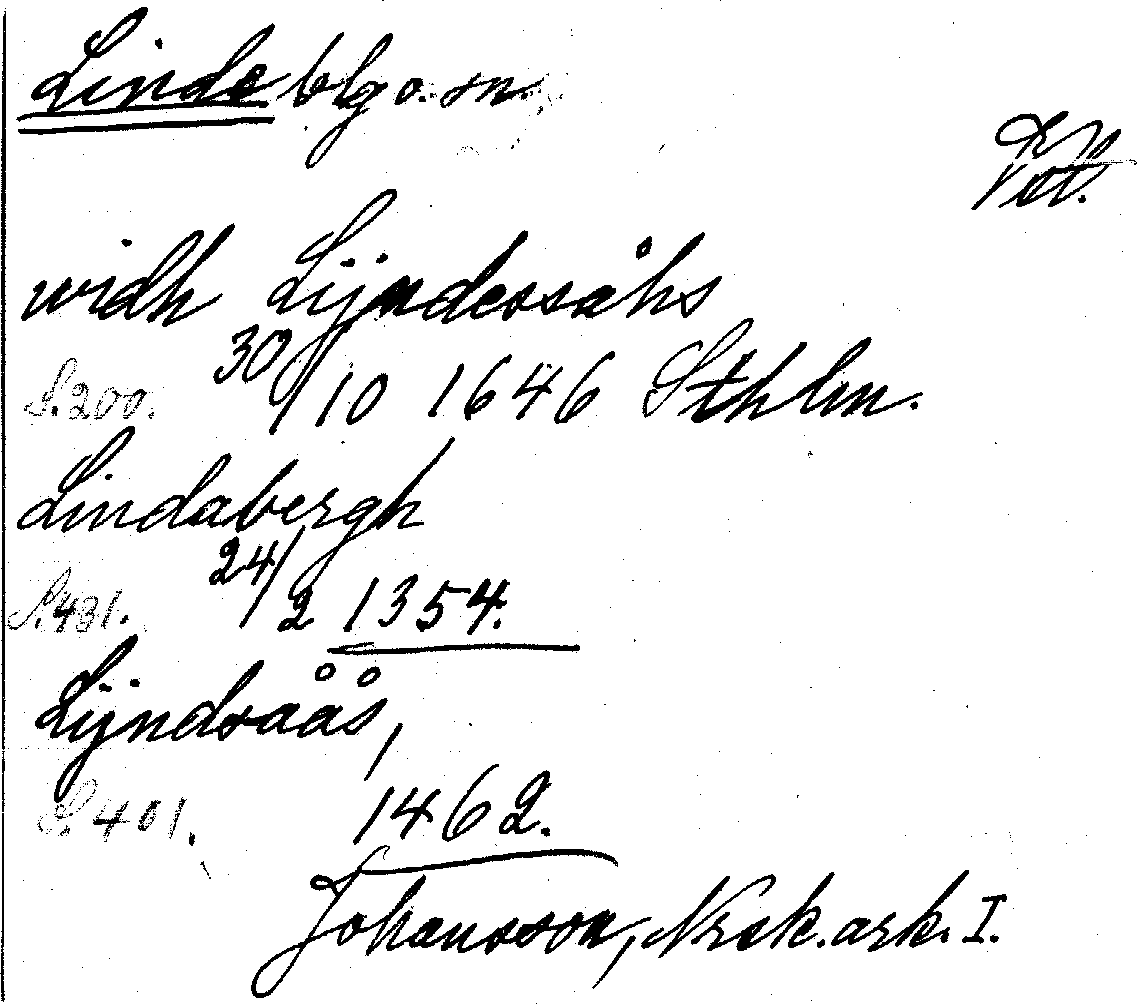 Linde blgo. sn.
Vstm.
widh Lijndessåhs
S. 200. 30/10 1646 Sthlm.
Lindabergh
S. 431. 24/2 1354.
Lijndsåås,
S. 401. 1462.
Johansson, Nrsk. ark. I.